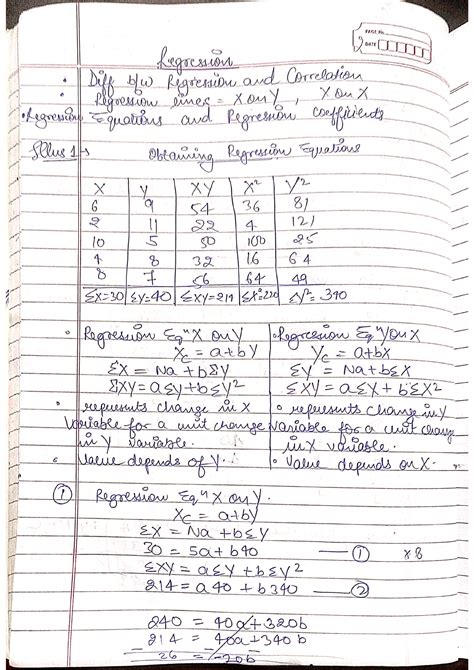 PAGE No.
DATE
Regression
• Diff b/w Regression and Correlation
• Regression lines = X on Y , Y on X
• Regression Equations and Regression coefficients
Illus 1 → Obtaining Regression Equations
X Y XY X² Y²
6 9 54 36 81
2 11 22 4 121
10 5 50 100 25
4 8 32 16 64
8 7 56 64 49
ΣX=30 ΣY=40 ΣXY=214 ΣX²=220 ΣY²=340
• Regression Eqⁿ X on Y
Xc = a+bY
ΣX = Na+bΣY
ΣXY = aΣY+bΣY²
• represents change in X
Variable for a unit change
in Y variable.
• Value depends of Y.
• Regression Eqⁿ Y on X
Yc = a+bX
ΣY = Na+bΣX
ΣXY = aΣX+bΣX²
• represents change in Y
variable for a unit change
in X variable.
• Value depends on X.
① Regression Eqⁿ X on Y.
Xc = a+bY
ΣX = Na+bΣY
30 = 5a+b40 — ① ×8
ΣXY = aΣY+bΣY²
214 = a40+b340 — ②
240 = 40a+320b
214 = 40a+340b
- - -
26 = -20b